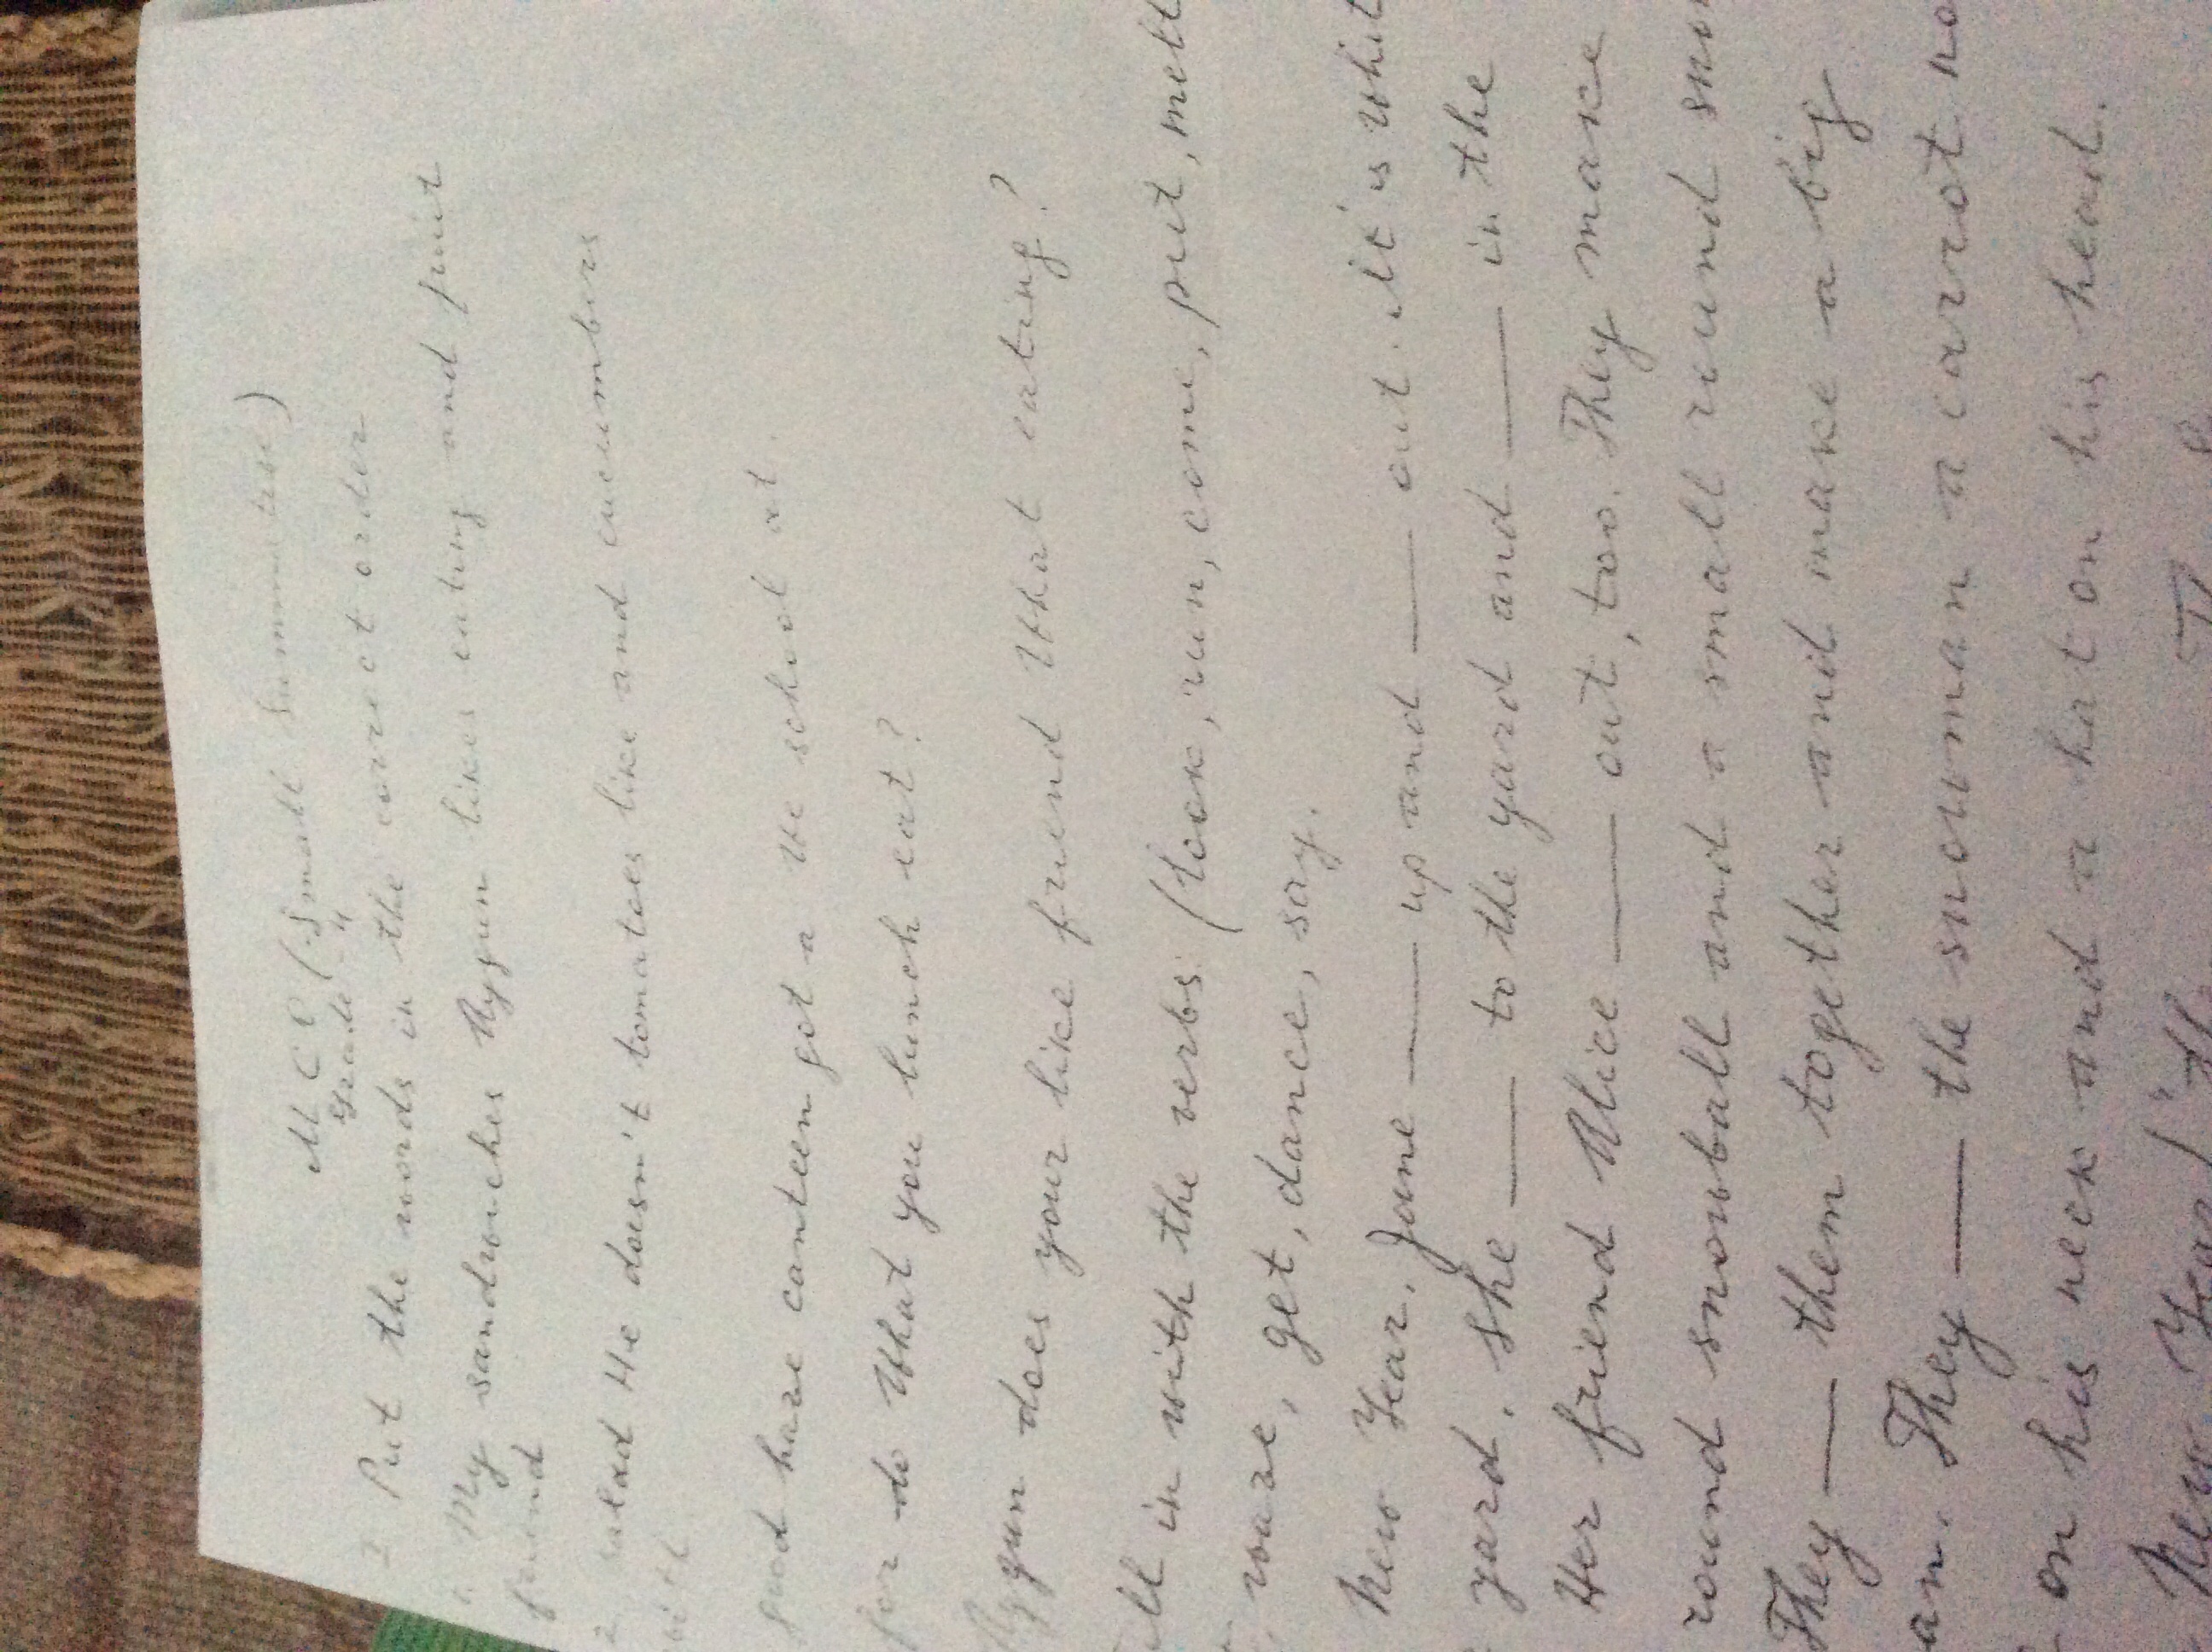 M C C (Small Summative)
Grade - 4
I Put the words in the correct order
1. My sandwiches Aygun likes eating and fruit
friend
2 salad He doesn't tomatoes like and cucumbers
with
food have canteen got a we school at.
for do What you lunch eat?
Aygun does your like friend What eating?
ll in with the verbs: (look, run, come, put, melt
wave, get, dance, say.
New Year. Jane ___ up and ___ out. It's whit
yard. She ___ to the yard and ___ in the
Her friend Alice ___ out, too. They make
round snowball and a small round snow
They ___ them together and make a big
an. They ___ the snowman a carrot no
on his neck and a hat on his head.
New Year!